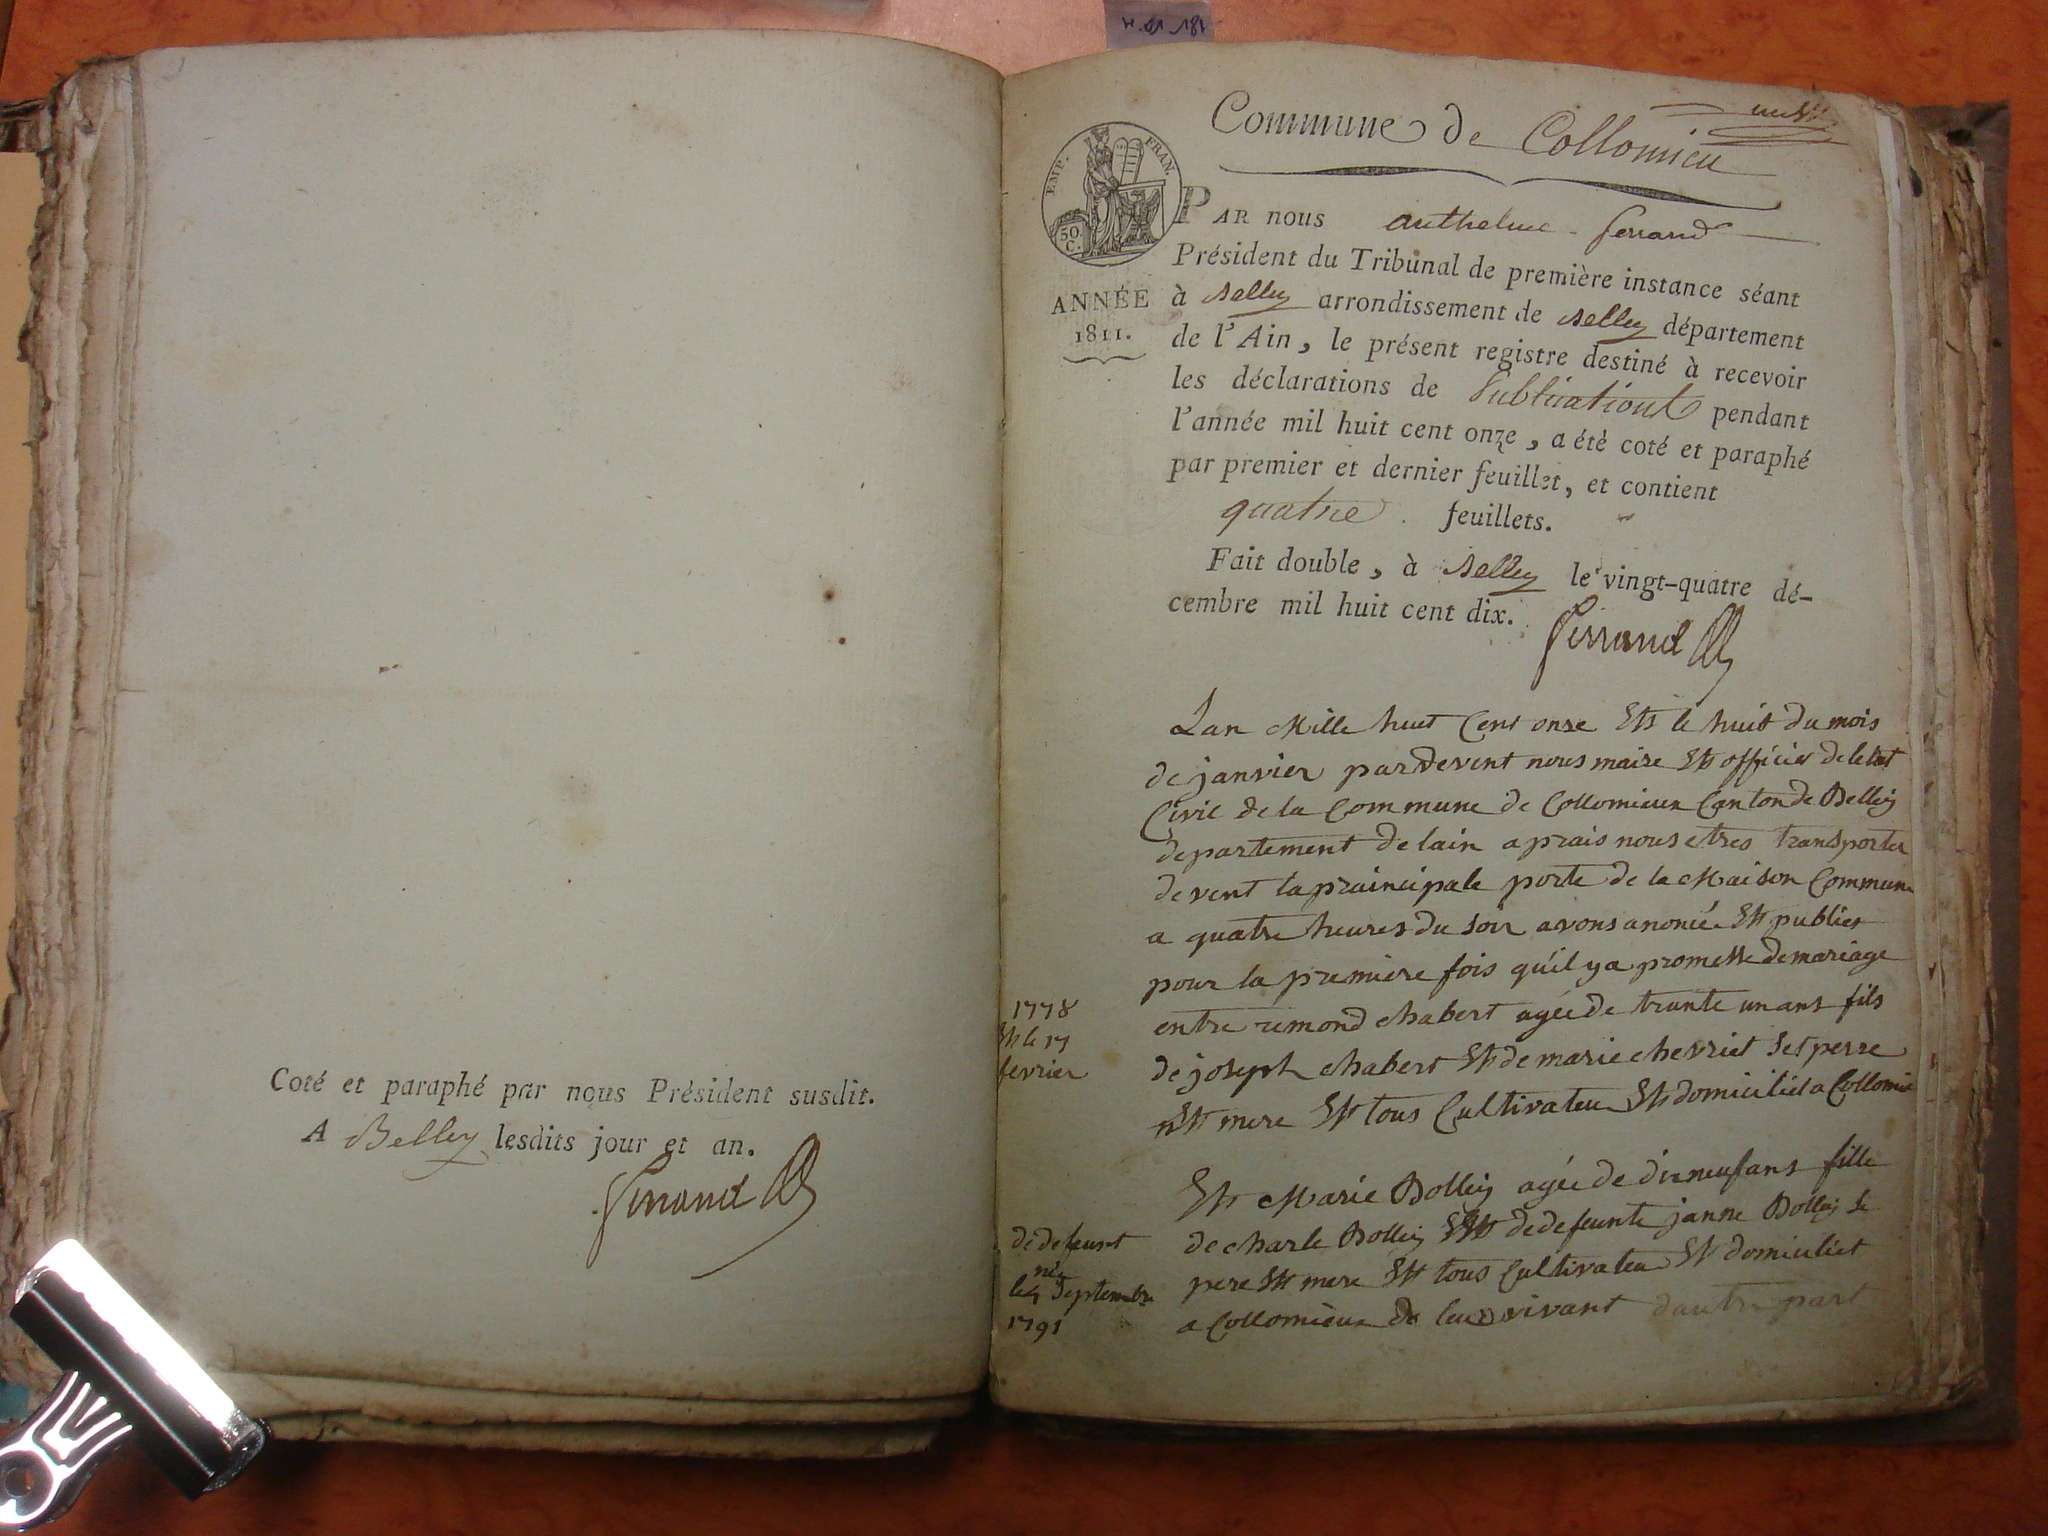 Coté et paraphé par nous Président susdit.
A Belley lesdits jour et an.
Ferrand
Commune de Collomieu
EMP. FRAN.
50.
C.
ANNÉE
1811.
PAR nous anthelme ferrand
Président du Tribunal de première instance séant
à Belley arrondissement de Belley département
de l'Ain, le présent registre destiné à recevoir
les déclarations de Publications pendant
l'année mil huit cent onze, a étè coté et paraphé
par premier et dernier feuillet, et contient
quatre feuillets.
Fait double, à Belley le vingt-quatre dé-
cembre mil huit cent dix.
Ferrand
Lan Mille huit Cent onze Et le huit du mois
de janvier pardevent nous maire Et officier deletat
Civil de la Commune de Collomieux Canton de Belley
departement de lain aprais nous etres transporter
devent la praincipale porte de la Maison Commune
a quatre heures du soir avons anoncé Et publier
pour la premiere fois qu'il y a promesse de mariage
entre rimond chabert agée de trante un ans fils
de joseph chabert Et de marie chevriet Ses perre
Et mere Et tous Cultivateu Et domiciliet a Collomie
1778
Et le 17
fevrier
Et Marie Bolley agée de dixneuf ans fille
de charle Bolley Et de defeunte janne Bolley Se
pere Et mere Et tous Cultivateu Et domiciliet
a Collomieux de leur vivant dautre part
de defeunt
née
le 4 Septembre
1791